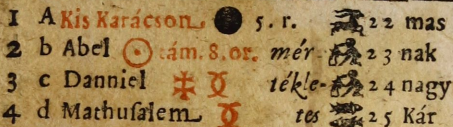 1 A Kis Karácson 5. r. 22 mas
2 b Abel tám. 8. or. mér- 23 nak
3 c Danniel tékle- 24 nagy
4 d Mathusalem tes 25 Kár